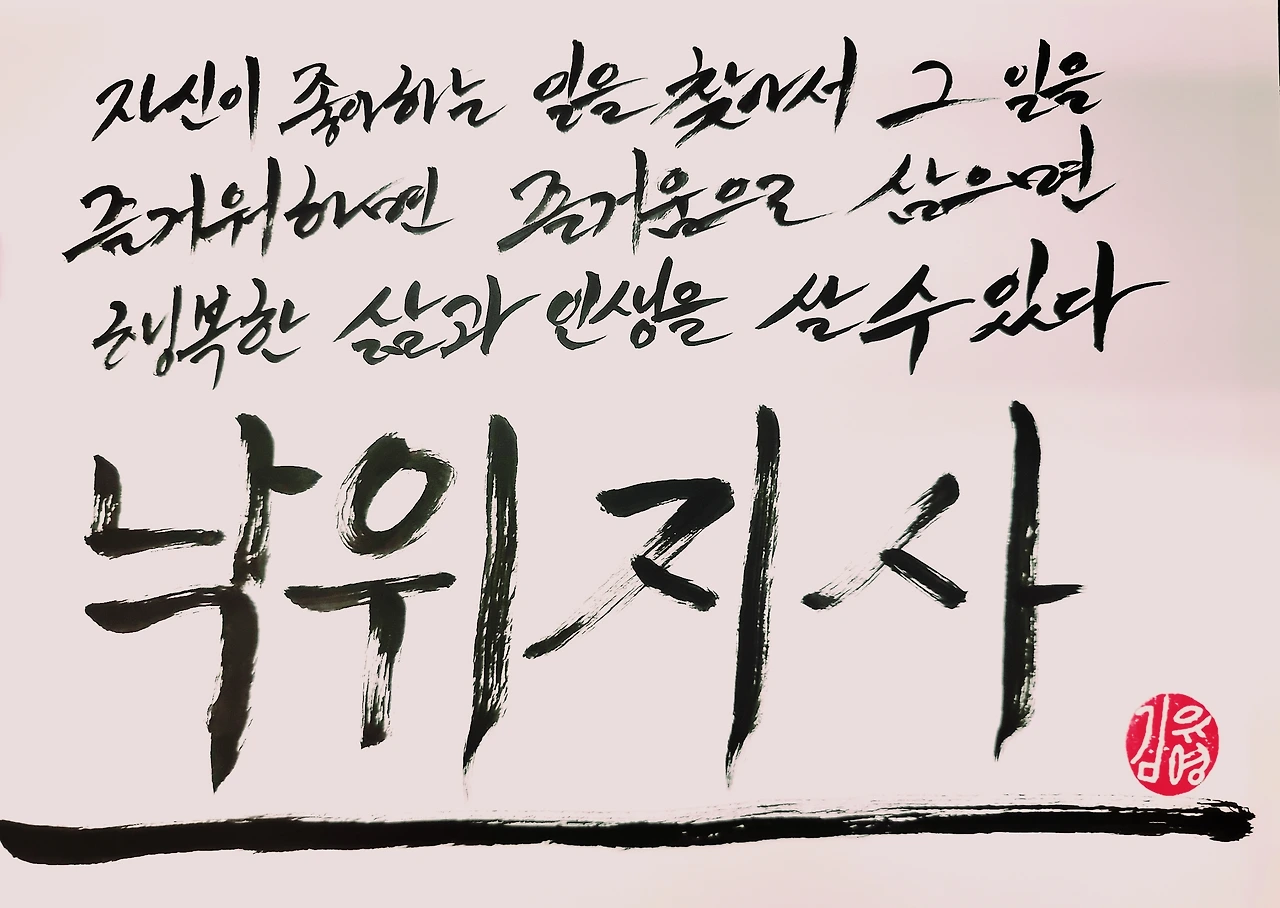 자신이 좋아하는 일을 찾아서 그 일을
즐거워하며 즐거움으로 삼으면
행복한 삶과 인생을 살 수 있다
낙위지사